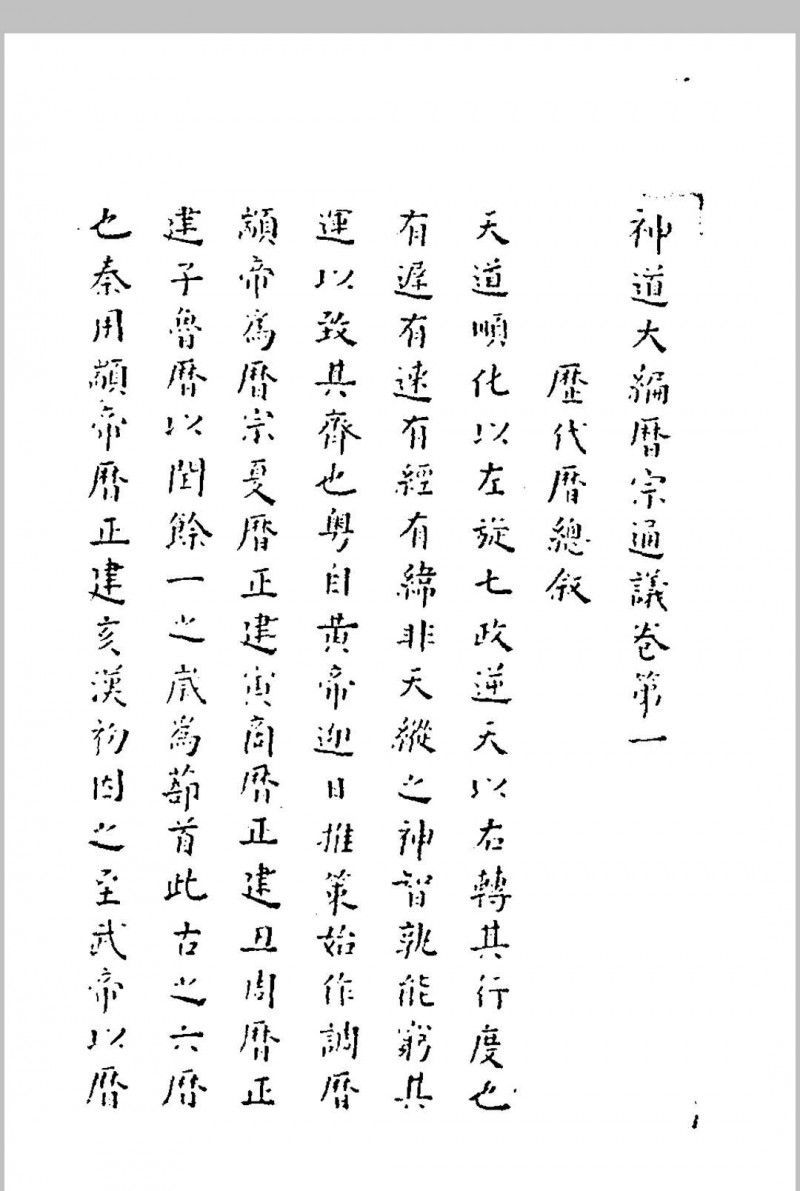 神道大編曆宗通議卷第一
歷代曆總敘
天道順化以左旋七政逆天以右轉其行度也
有遲有速有經有緯非天縱之神智孰能窮其
運以致其齊也粵自黃帝迎日推策始作調曆
顓帝為曆宗夏曆正建寅商曆正建丑周曆正
建子魯曆以閏餘一之歲為蔀首此古之六曆
也秦用顓帝曆正建亥漢初因之至武帝以曆